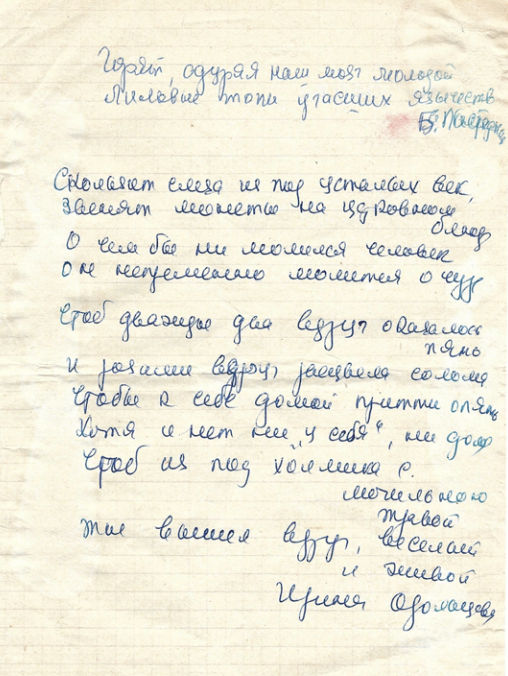 Горят, одуряя наш мозг молодой
Лиловые топи угасших язычеств
Б. Пастернак
Скользит слеза из под усталых век,
Звенят монеты на церковном
блюде
О чем бы ни молился человек
Он непременно молится о чуде
Чтоб дважды два вдруг оказалось
пять
И розами вдруг расцвела солома
Чтобы к себе домой притти опять
Хотя и нет ни "у себя", ни дома
Чтоб из под холмика с
могильною
травой
Ты вышел вдруг, веселый
и живой